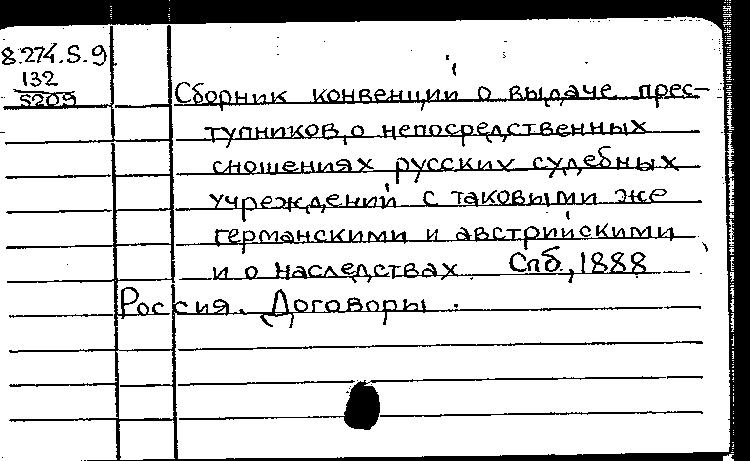 8.274.S.9
132
5209
Сборник конвенций о выдаче прес-
тупников, о непосредственных
сношениях русских судебных
учреждений с таковыми же
германскими и австрийскими
и о наследствах. Спб., 1888
Россия. Договоры.